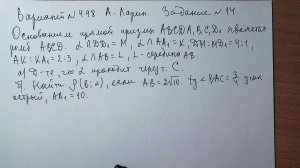 Вариант №498 А. Ларин. Задание №14.
Основанием прямой призмы ABCDA₁B₁C₁D₁ является
ромб ABCD. α∩DD₁=M, α∩AA₁=K, DM:MD₁=4:1,
AK:KA₁=2:3, α∩AB=L, L-середина AB.
а) Д-те, что α проходит через т. C
б) Найти ρ(B; α), если AB=2√10. tg∠BAC=3/4 угол
острый, AA₁=10.